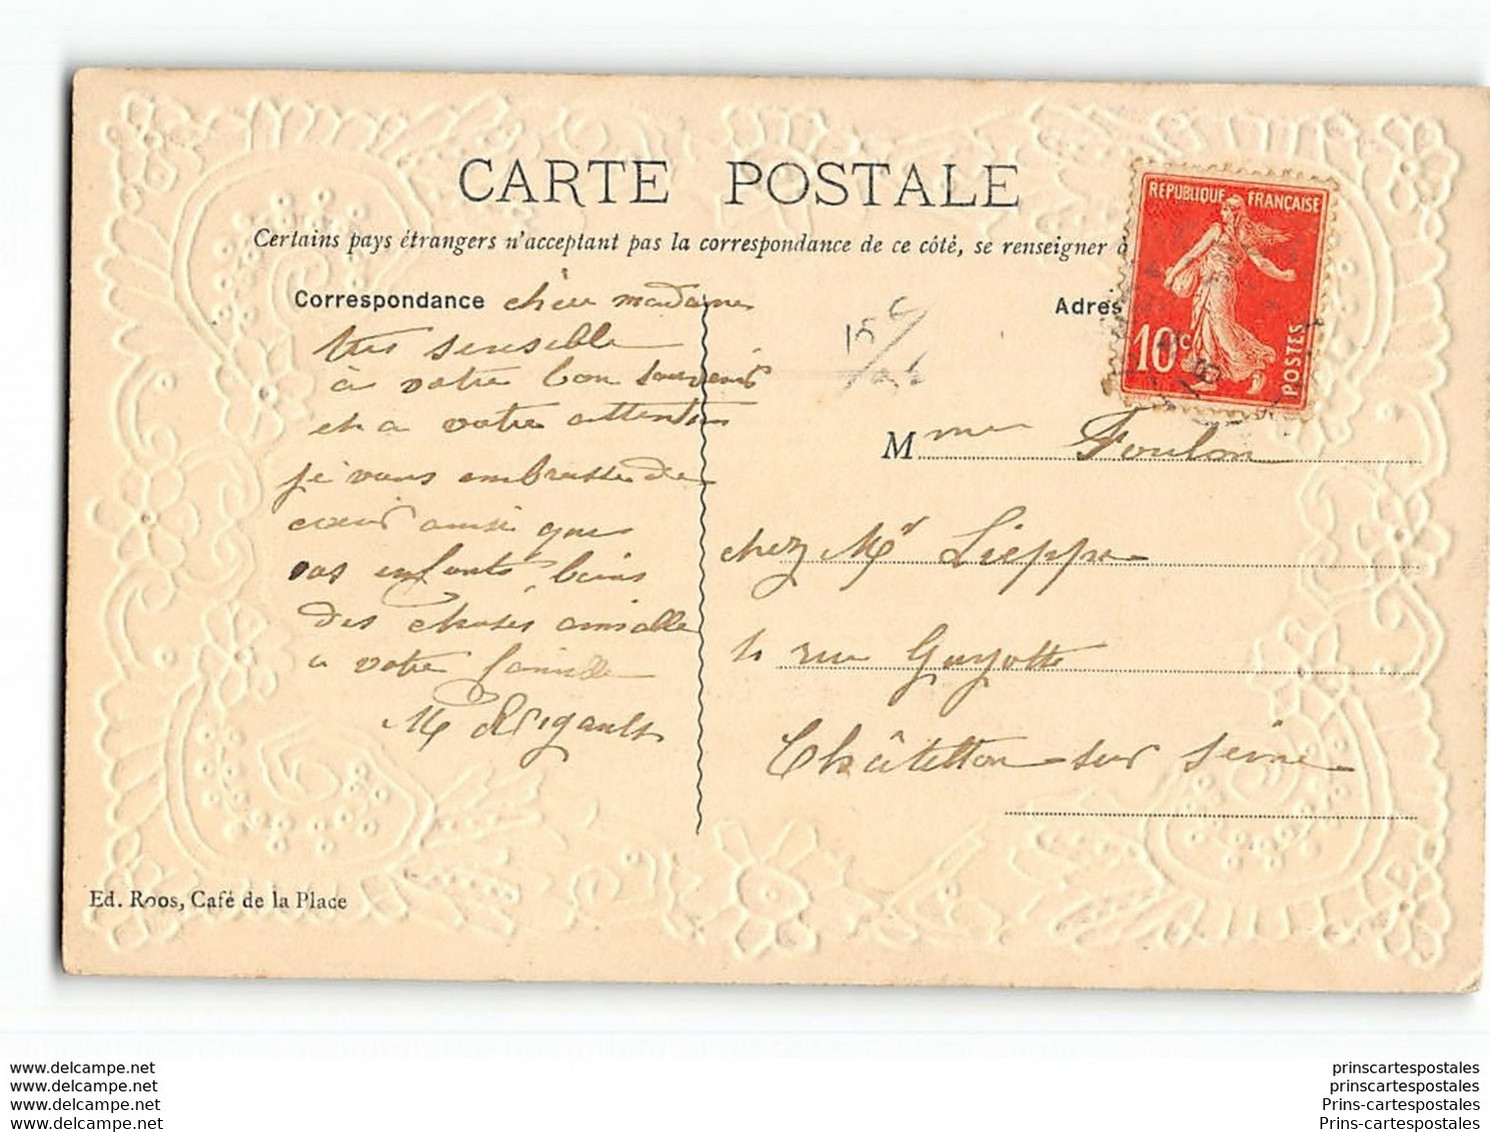 CARTE POSTALE
Certains pays étrangers n'acceptant pas la correspondance de ce côté, se renseigner à
REPUBLIQUE FRANÇAISE
10c
POSTES
Correspondance chèu madame
Adres
très sensible
à votre bon souvenir
et a votre attention
je vous embrasse de
cœur ainsi que
vos enfants, biens
des choses amialle
a votre famille
M Rigault
15 c
Mme Foulon
chez Mr Lieppe
rue Guyotte
Châtellon sur seine
Ed. Roos, Café de la Place
www.delcampe.net
www.delcampe.net
www.delcampe.net
www.delcampe.net
prinscartespostales
prinscartespostales
Prins-cartespostales
Prins-cartespostales